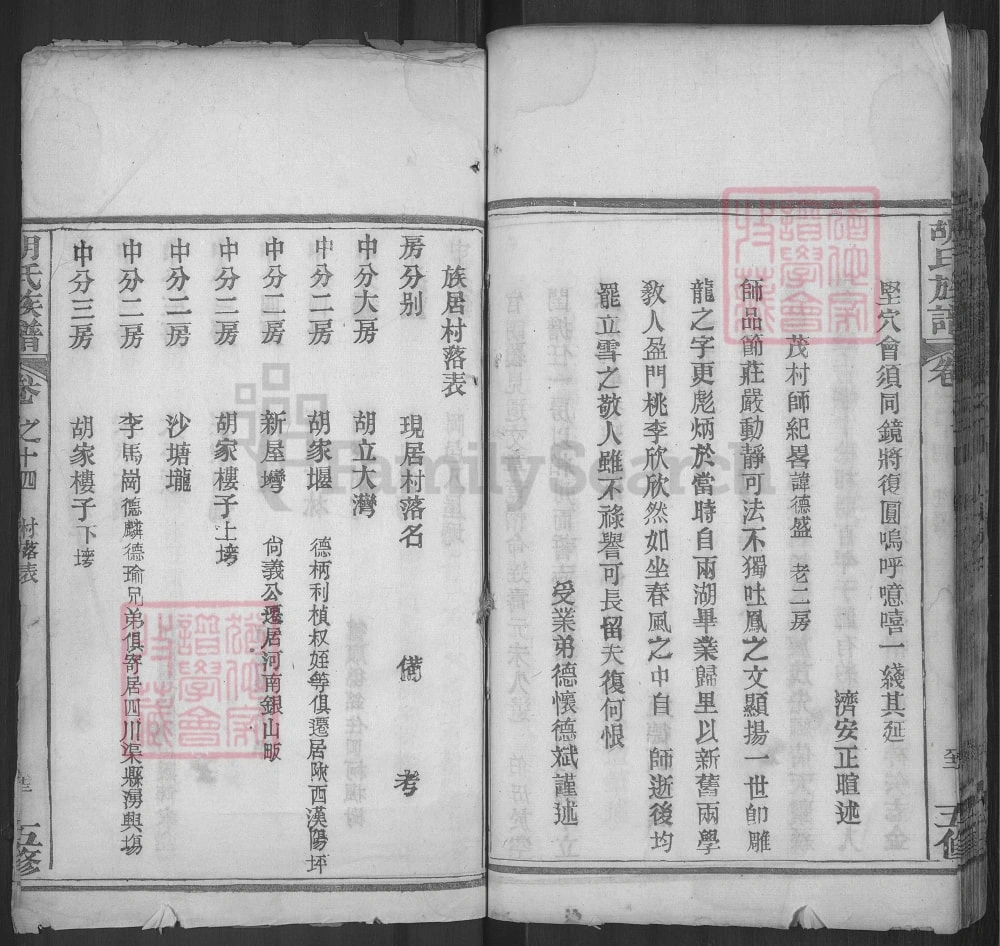 堅穴會須同鏡將復圓嗚呼噫嘻一綫其延
濟安正暄述
茂村師紀畧諱德盛 老二房
師品節莊嚴動靜可法不獨吐鳳之文顯揚一世卽雕
龍之字更彪炳於當時自兩湖畢業歸里以新舊兩學
敎人盈門桃李欣欣然如坐春風之中自 師逝後均
罷立雪之敬人雖不祿譽可長留夫復何恨
受業弟德懷德斌謹述
胡氏族譜 卷
五修
族居村落表
房分別 現居村落名 備考
中分大房 胡立大灣
中分二房 胡家堰 德柄利楨权姪等俱遷居陝西漢陽坪
中分二房 新屋灣 尙義公遷居河南銀山畈
中分二房 胡家樓子上塝
中分二房 沙塘壠
中分二房 李馬崗德麟德瑜兄弟俱寄居四川渠縣湧興塲
中分三房 胡家樓子下塝
胡氏族譜 卷之十四 村落表
五修
FamilySearch